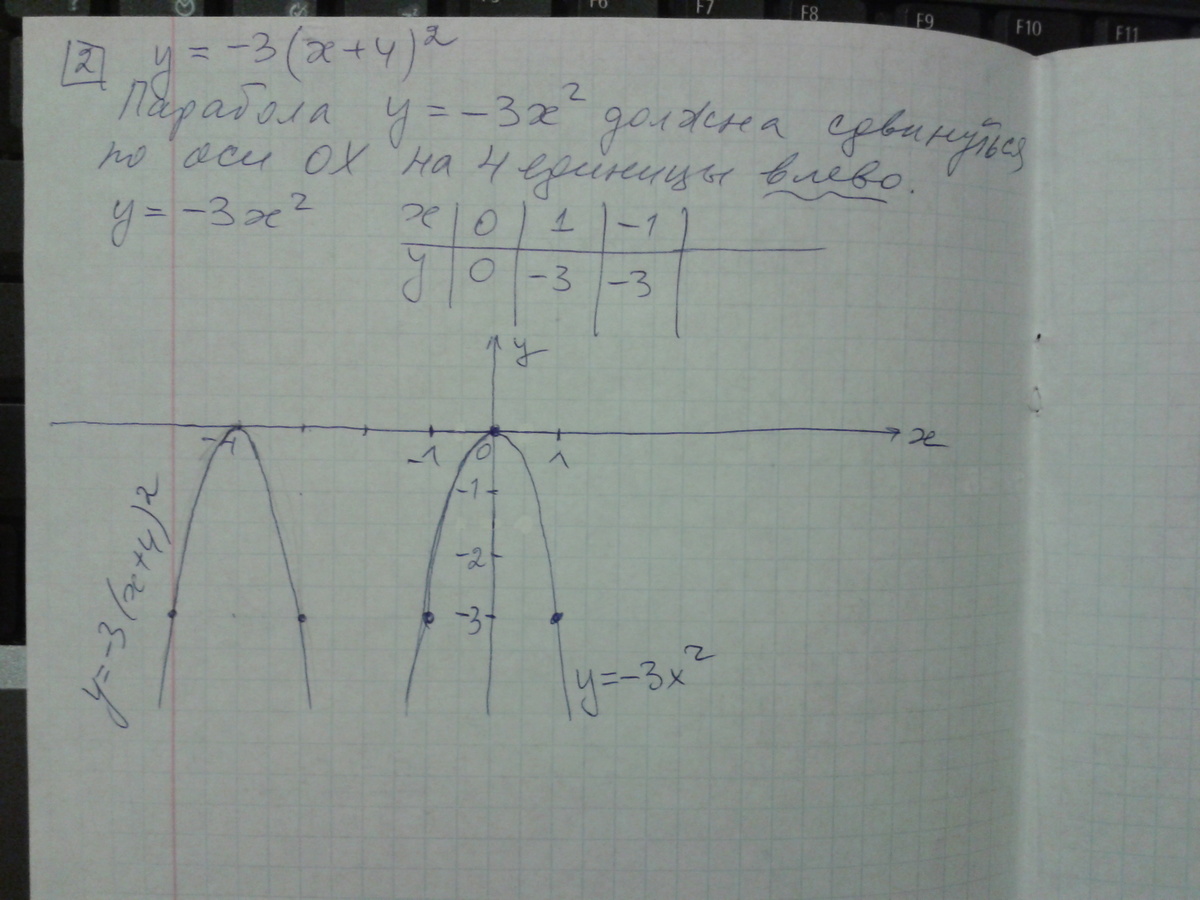 F6 F7 F8 F9 F10 F11
2 y = -3(x+4)²
Парабола y = -3x² должна сдвинуться
по оси OX на 4 единицы влево.
y = -3x²
x | 0 | 1 | -1 |
y | 0 | -3 | -3 |
y
x
-4 -1 0 1
-1
-2
-3
y=-3(x+4)²
y=-3x²